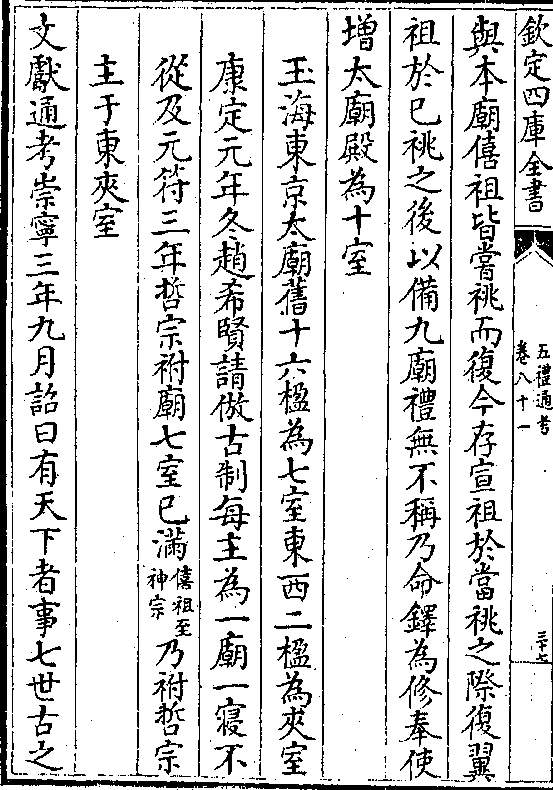 欽定四庫全書
五禮通考
卷八十一
三十七
與本廟僖祖皆嘗祧而復今存宣祖於當祧之際復翼
祖於已祧之後以備九廟禮無不稱乃命鐸為修奉使
增太廟殿為十室
玉海東京太廟舊十六楹為七室東西二楹為夾室
康定元年冬趙希賢請倣古制每主為一廟一寢不
從及元符三年哲宗祔廟七室已滿僖祖至神宗乃祔哲宗
主于東夾室
文獻通考崇寧三年九月詔曰有天下者事七世古之